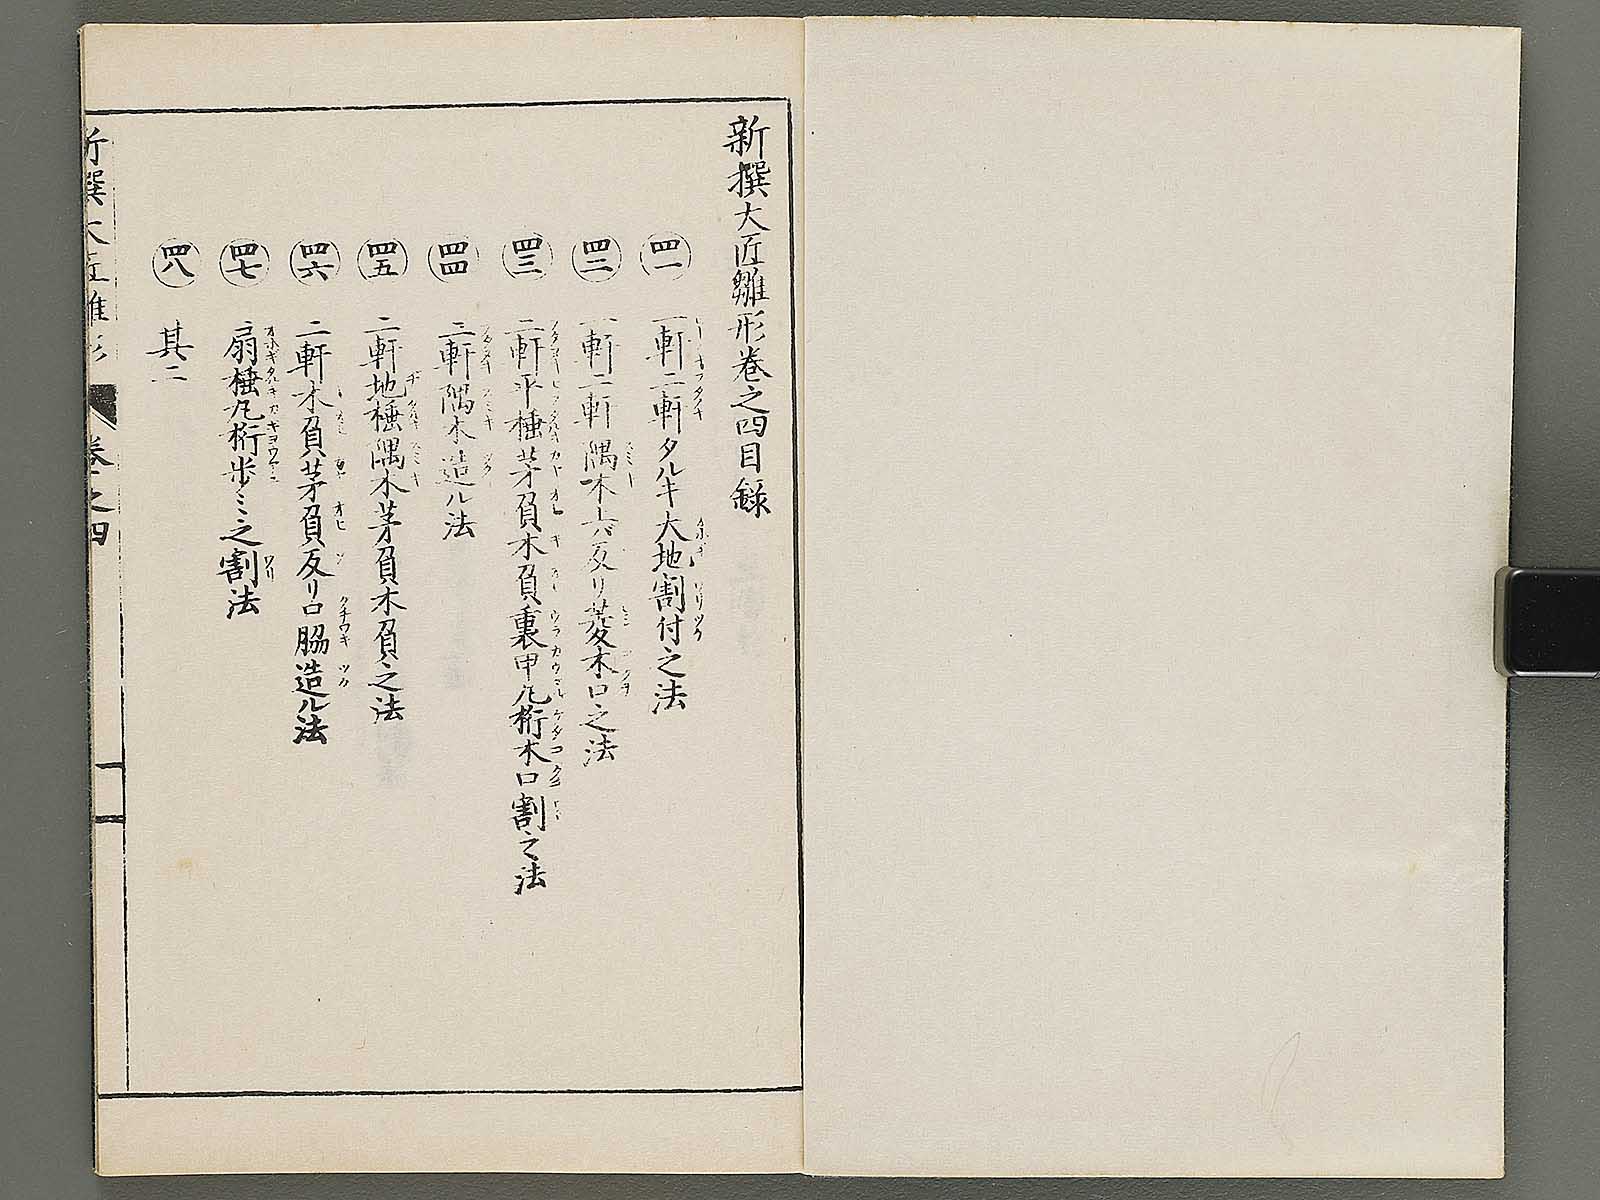 新撰大匠雛形卷之四目録
四一 一軒二軒タルキ大地割付之法
四二 一軒二軒隅木六バ反リ菱木口之法
四三 二軒平棰茅負木負裏甲丸桁木口割之法
四四 二軒隅木造ル法
四五 二軒地棰隅木茅負木負之法
四六 二軒木負茅負反リ口脇造ル法
四七 扇棰丸桁歩ミ之割法
四八 其二
新撰大匠雛形 卷之四